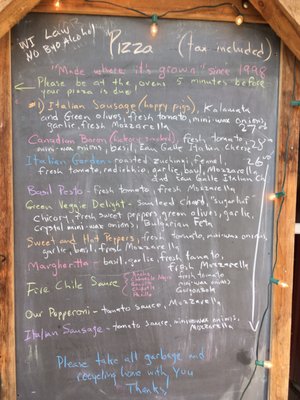 WI Law
No BYO Alcohol
Pizza
(tax included)
"Made where it's grown" since 1998
Please be at the ovens 5 minutes before
your pizza is due!
#1) Italian Sausage (happy pigs), Kalamata
and Green olives, fresh tomato, mini-wax onions,
garlic, fresh Mozzarella
27
Canadian Bacon (hickory smoked), fresh tomato,
mini-wax onions, basil, Eau Galle Italian Cheese
Italian Garden - roasted zuchini, fennel,
fresh tomato, radicchio, garlic, basil, Mozzarella
Eau Galle Italian Ch
Basil Pesto - fresh tomato, fresh Mozzarella
Green Veggie Delight - Sunleed Chard, "Sugarhat"
Chicory, fresh sweet peppers, green olives, garlic,
crystal mini-wax onions, Bulgarian Feta
Sweet and Hot Peppers, fresh tomato, mini wax onions
garlic, basil, fresh Mozzarella
Margherita - basil, garlic, fresh tomato,
fresh Mozzarella
Five Chile Sauce
fresh tomato
mini-wax onions
Gorgonzola
Our Pepperoni - tomato sauce, Mozzarella
Italian Sausage - tomato sauce, mini-wax onions,
Mozzarella
Please take all garbage and
recycling home with you
Thanks!